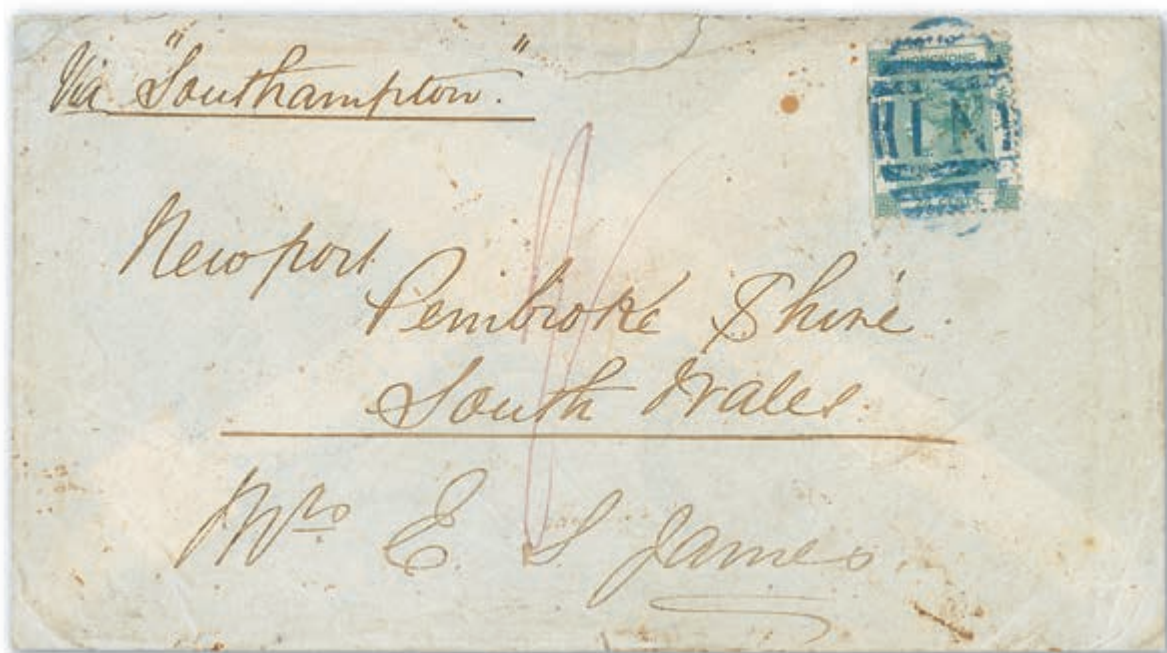 Via "Southampton."
HONGKONG
Newport
Pembroke Shire
South Wales
Mrs E. S. James